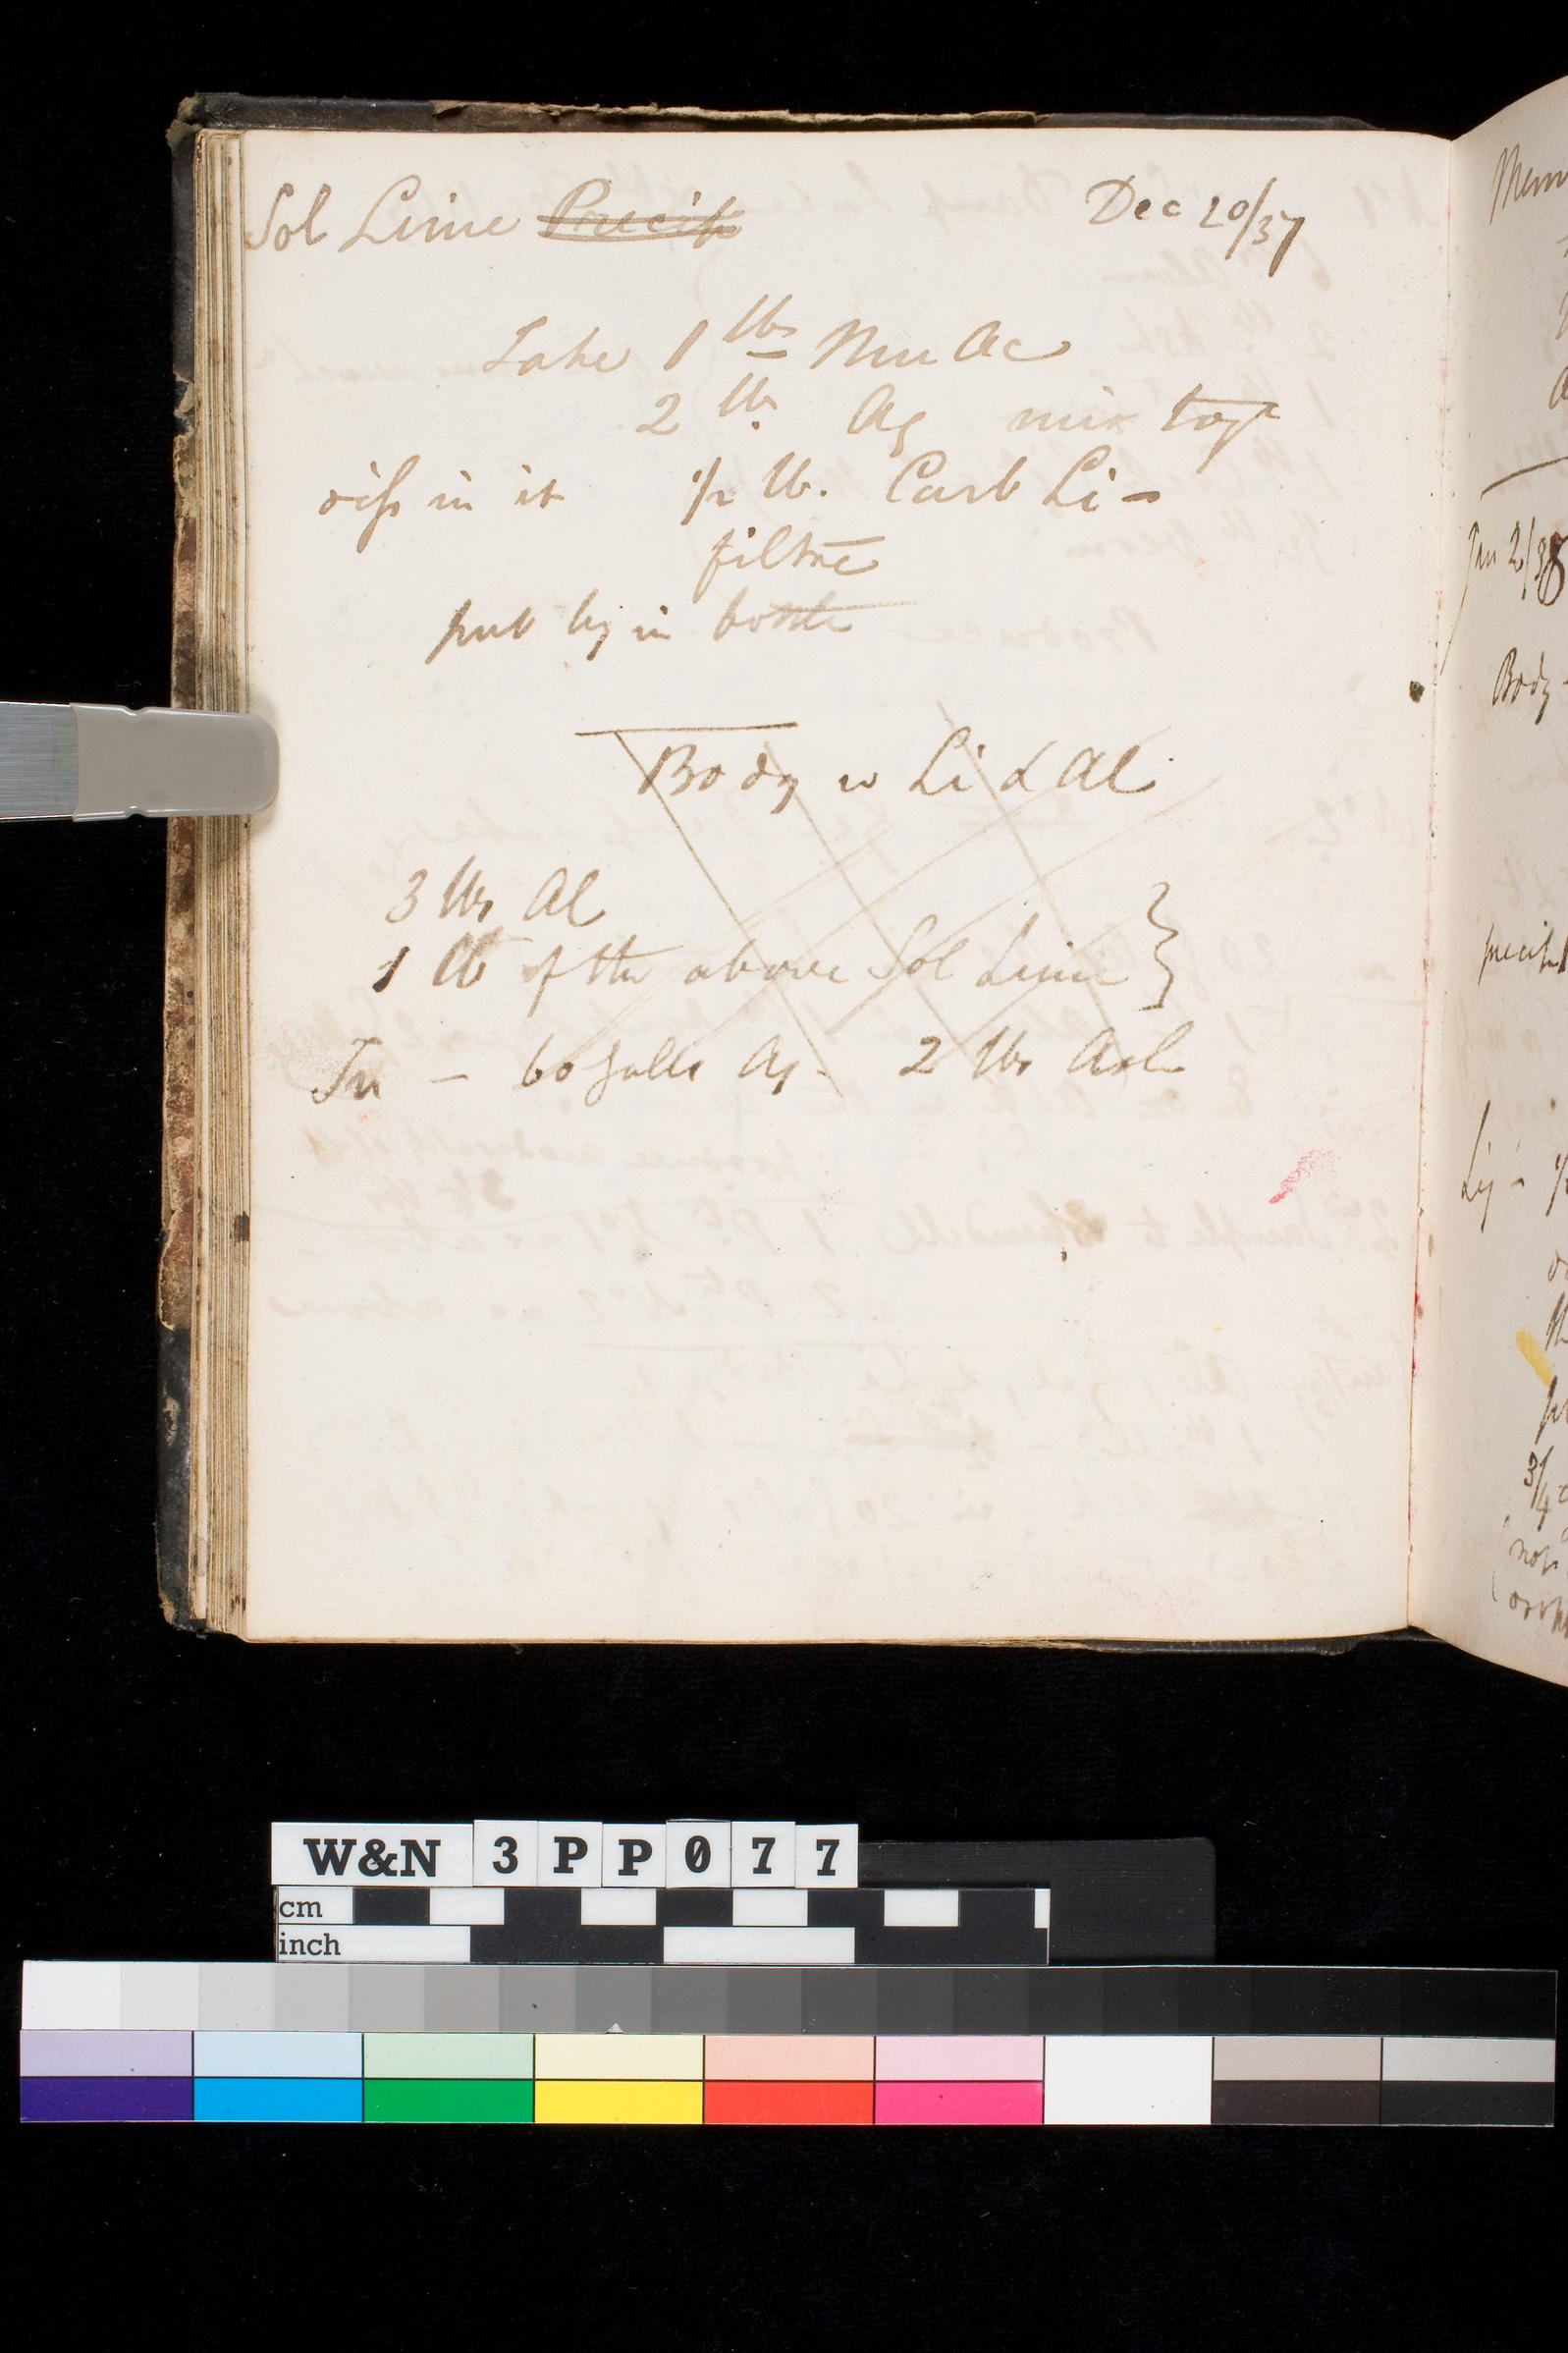 Sol Lime Precip Dec 20/37
Take 1 lbs Mu Ac
2 lbs Aq mix togr
diss in it 1/2 lb. Carb Li -
filtre
put by in bottle
Body w Li & Al
3 lbs Al
1 lb of the above Sol Lime }
In - 60 galls Aq - 2 lbs Ash
Mem
Jan 2/38
Body -
precip
Liq -
3/4
not
W&N 3PP077
cm
inch